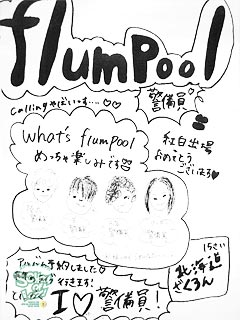 flumpool
Callingやばいっす…♡♡
警備員
What's flumpool
めっちゃ楽しみです
紅白出場
おめでとう
ございます♥
アルバム予約しました♡
行きます!
I♡警備員!
15さい
北海道